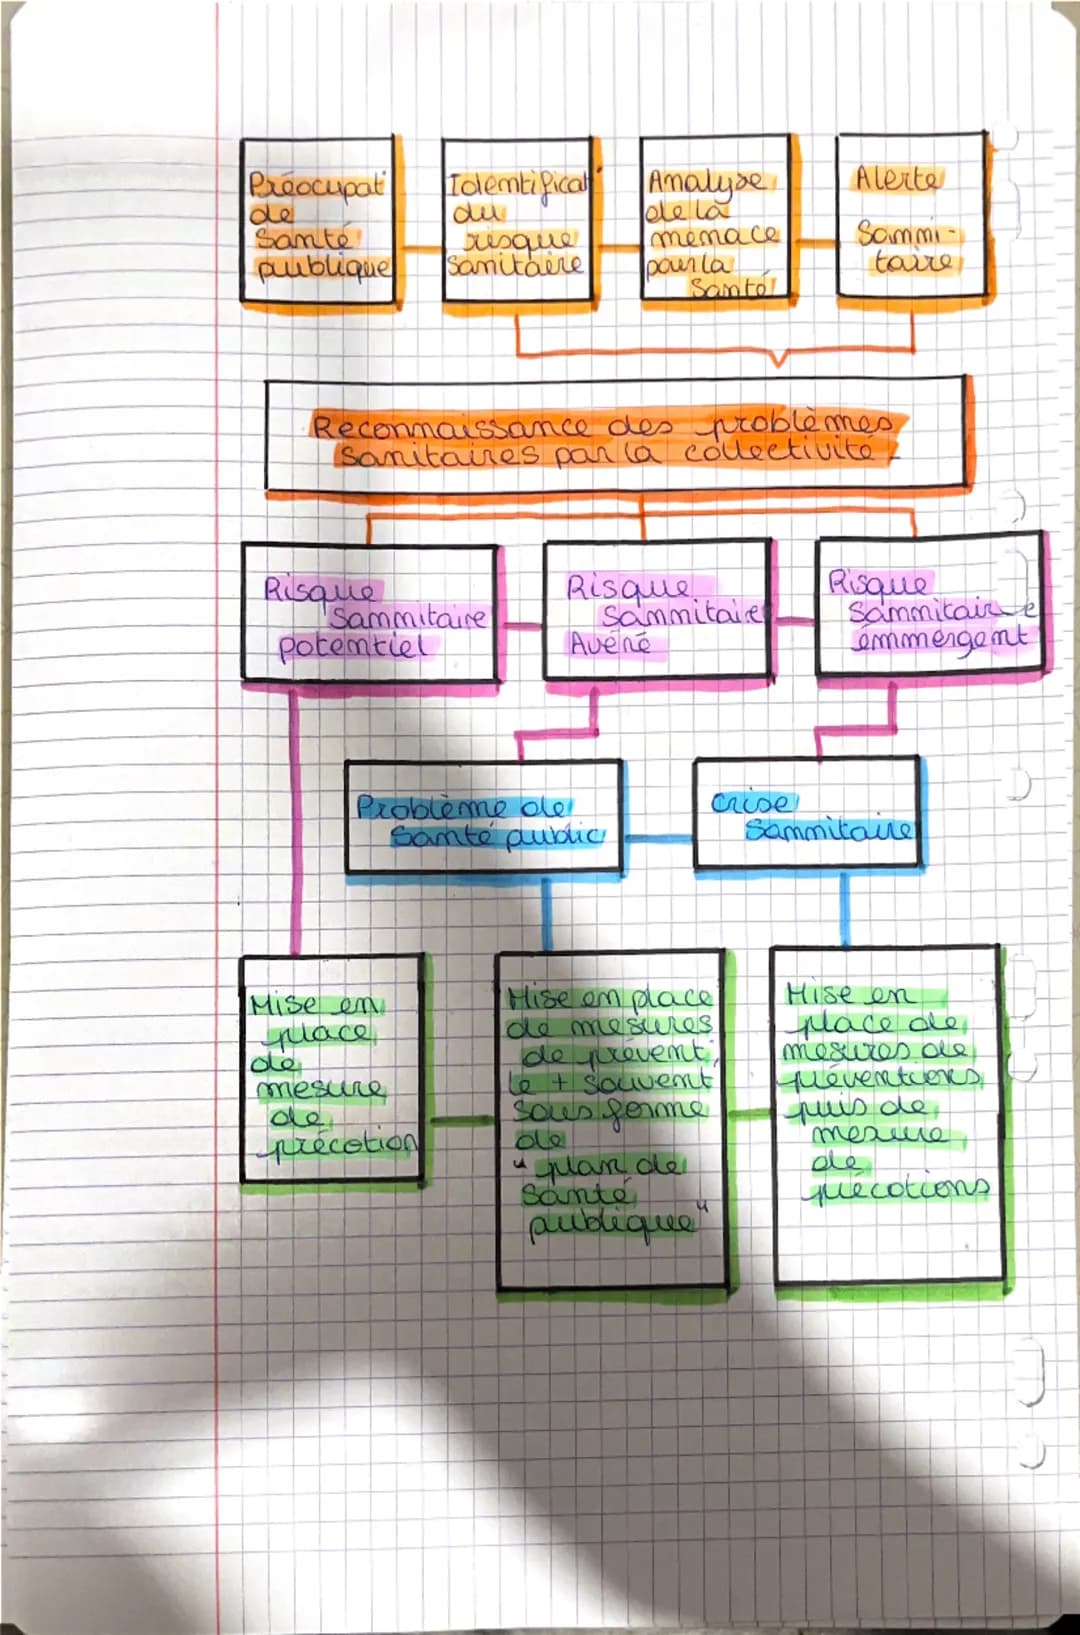 Préocupat°
de
Santé
publique
Identificat°
du
risque
sanitaire
Analyse
de la
menace
pour la
Santé
Alerte
Sammi-
taire
Reconnaissance des problèmes
sanitaires par la collectivité.
Risque
Sammitaire
potentiel
Risque
Sammitaire
Avéré
Risque
Sammitaire
émmergent
Problème de
Santé public
Crise
Sammitaire
Mise en
place
de
mesure
de
précotion
Mise en place
de mesures
de prévent°,
le + souvent
sous forme
de
"plan de
Santé
publique"
Mise en
place de
mesures de
préventions
puis de
mesure
de
précotions